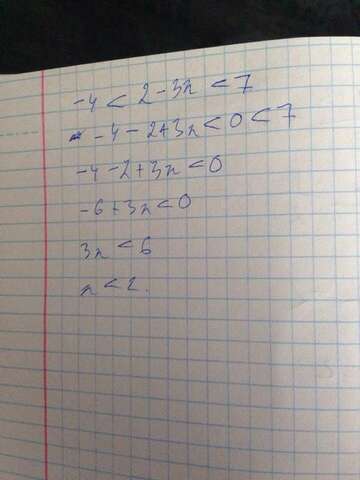 -4 < 2 - 3x < 7
- -4 - 2 + 3x < 0 < 7
-4 - 2 + 3x < 0
-6 + 3x < 0
3x < 6
x < 2.